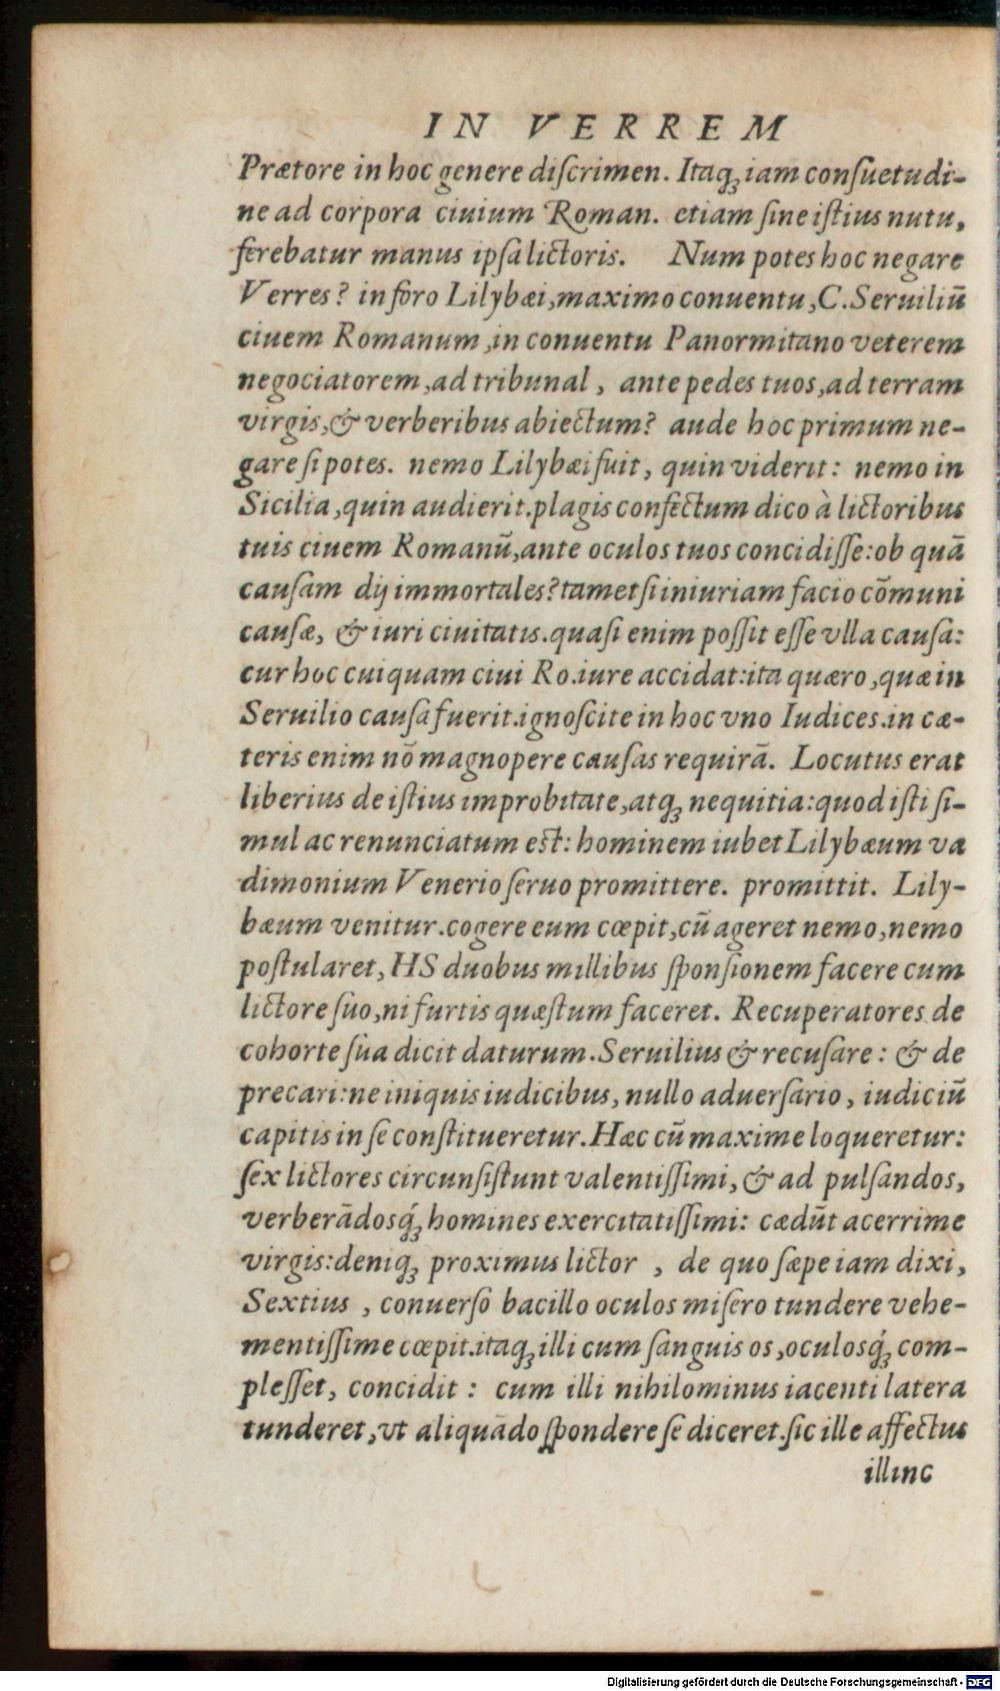 IN VERREM
Prætore in hoc genere diſcrimen. Itaq́ꝫ iam conſuetudi-
ne ad corpora ciuium Roman. etiam ſine iſtius nutu,
ferebatur manus ipſa lictoris. Num potes hoc negare
Verres? in foro Lilybæi, maximo conuentu, C. Seruiliū
ciuem Romanum, in conuentu Panormitano veterem
negociatorem, ad tribunal, ante pedes tuos, ad terram
virgis, & verberibus abiectum? aude hoc primum ne-
gare ſi potes. nemo Lilybæi fuit, quin viderit: nemo in
Sicilia, quin audierit. plagis confectum dico à lictoribus
tuis ciuem Romanū, ante oculos tuos concidiſſe: ob quā
cauſam dij immortales? tametſi iniuriam facio cōmuni
cauſæ, & iuri ciuitatis. quaſi enim poſſit eſſe vlla cauſa:
cur hoc cuiquam ciui Ro. iure accidat: ita quæro, quæ in
Seruilio cauſa fuerit. ignoſcite in hoc vno Iudices. in cæ-
teris enim nō magnopere cauſas requirā. Locutus erat
liberius de iſtius improbitate, atqꝫ nequitia: quod iſti ſi-
mul ac renunciatum eſt: hominem iubet Lilybæum va
dimonium Venerio ſeruo promittere. promittit. Lily-
bæum venitur. cogere eum cœpit, cū ageret nemo, nemo
poſtularet, HS duobus millibus ſponſionem facere cum
lictore ſuo, ni furtis quæſtum faceret. Recuperatores de
cohorte ſua dicit daturum. Seruilius & recuſare: & de
precari: ne iniquis iudicibus, nullo aduerſario, iudiciū
capitis in ſe conſtitueretur. Hæc cū maxime loqueretur:
ſex lictores circunſiſtunt valentiſſimi, & ad pulſandos,
verberādosq́ꝫ homines exercitatiſſimi: cædūt acerrime
virgis: deniqꝫ proximus lictor , de quo ſæpe iam dixi,
Sextius , conuerſo bacillo oculos miſero tundere vehe-
mentiſſime cœpit. itaqꝫ illi cum ſanguis os, oculosq́ꝫ com-
pleſſet, concidit: cum illi nihilominus iacenti latera
tunderet, vt aliquādo ſpondere ſe diceret. ſic ille affectus
illinc
Digitalisierung gefördert durch die Deutsche Forschungsgemeinschaft - DFG